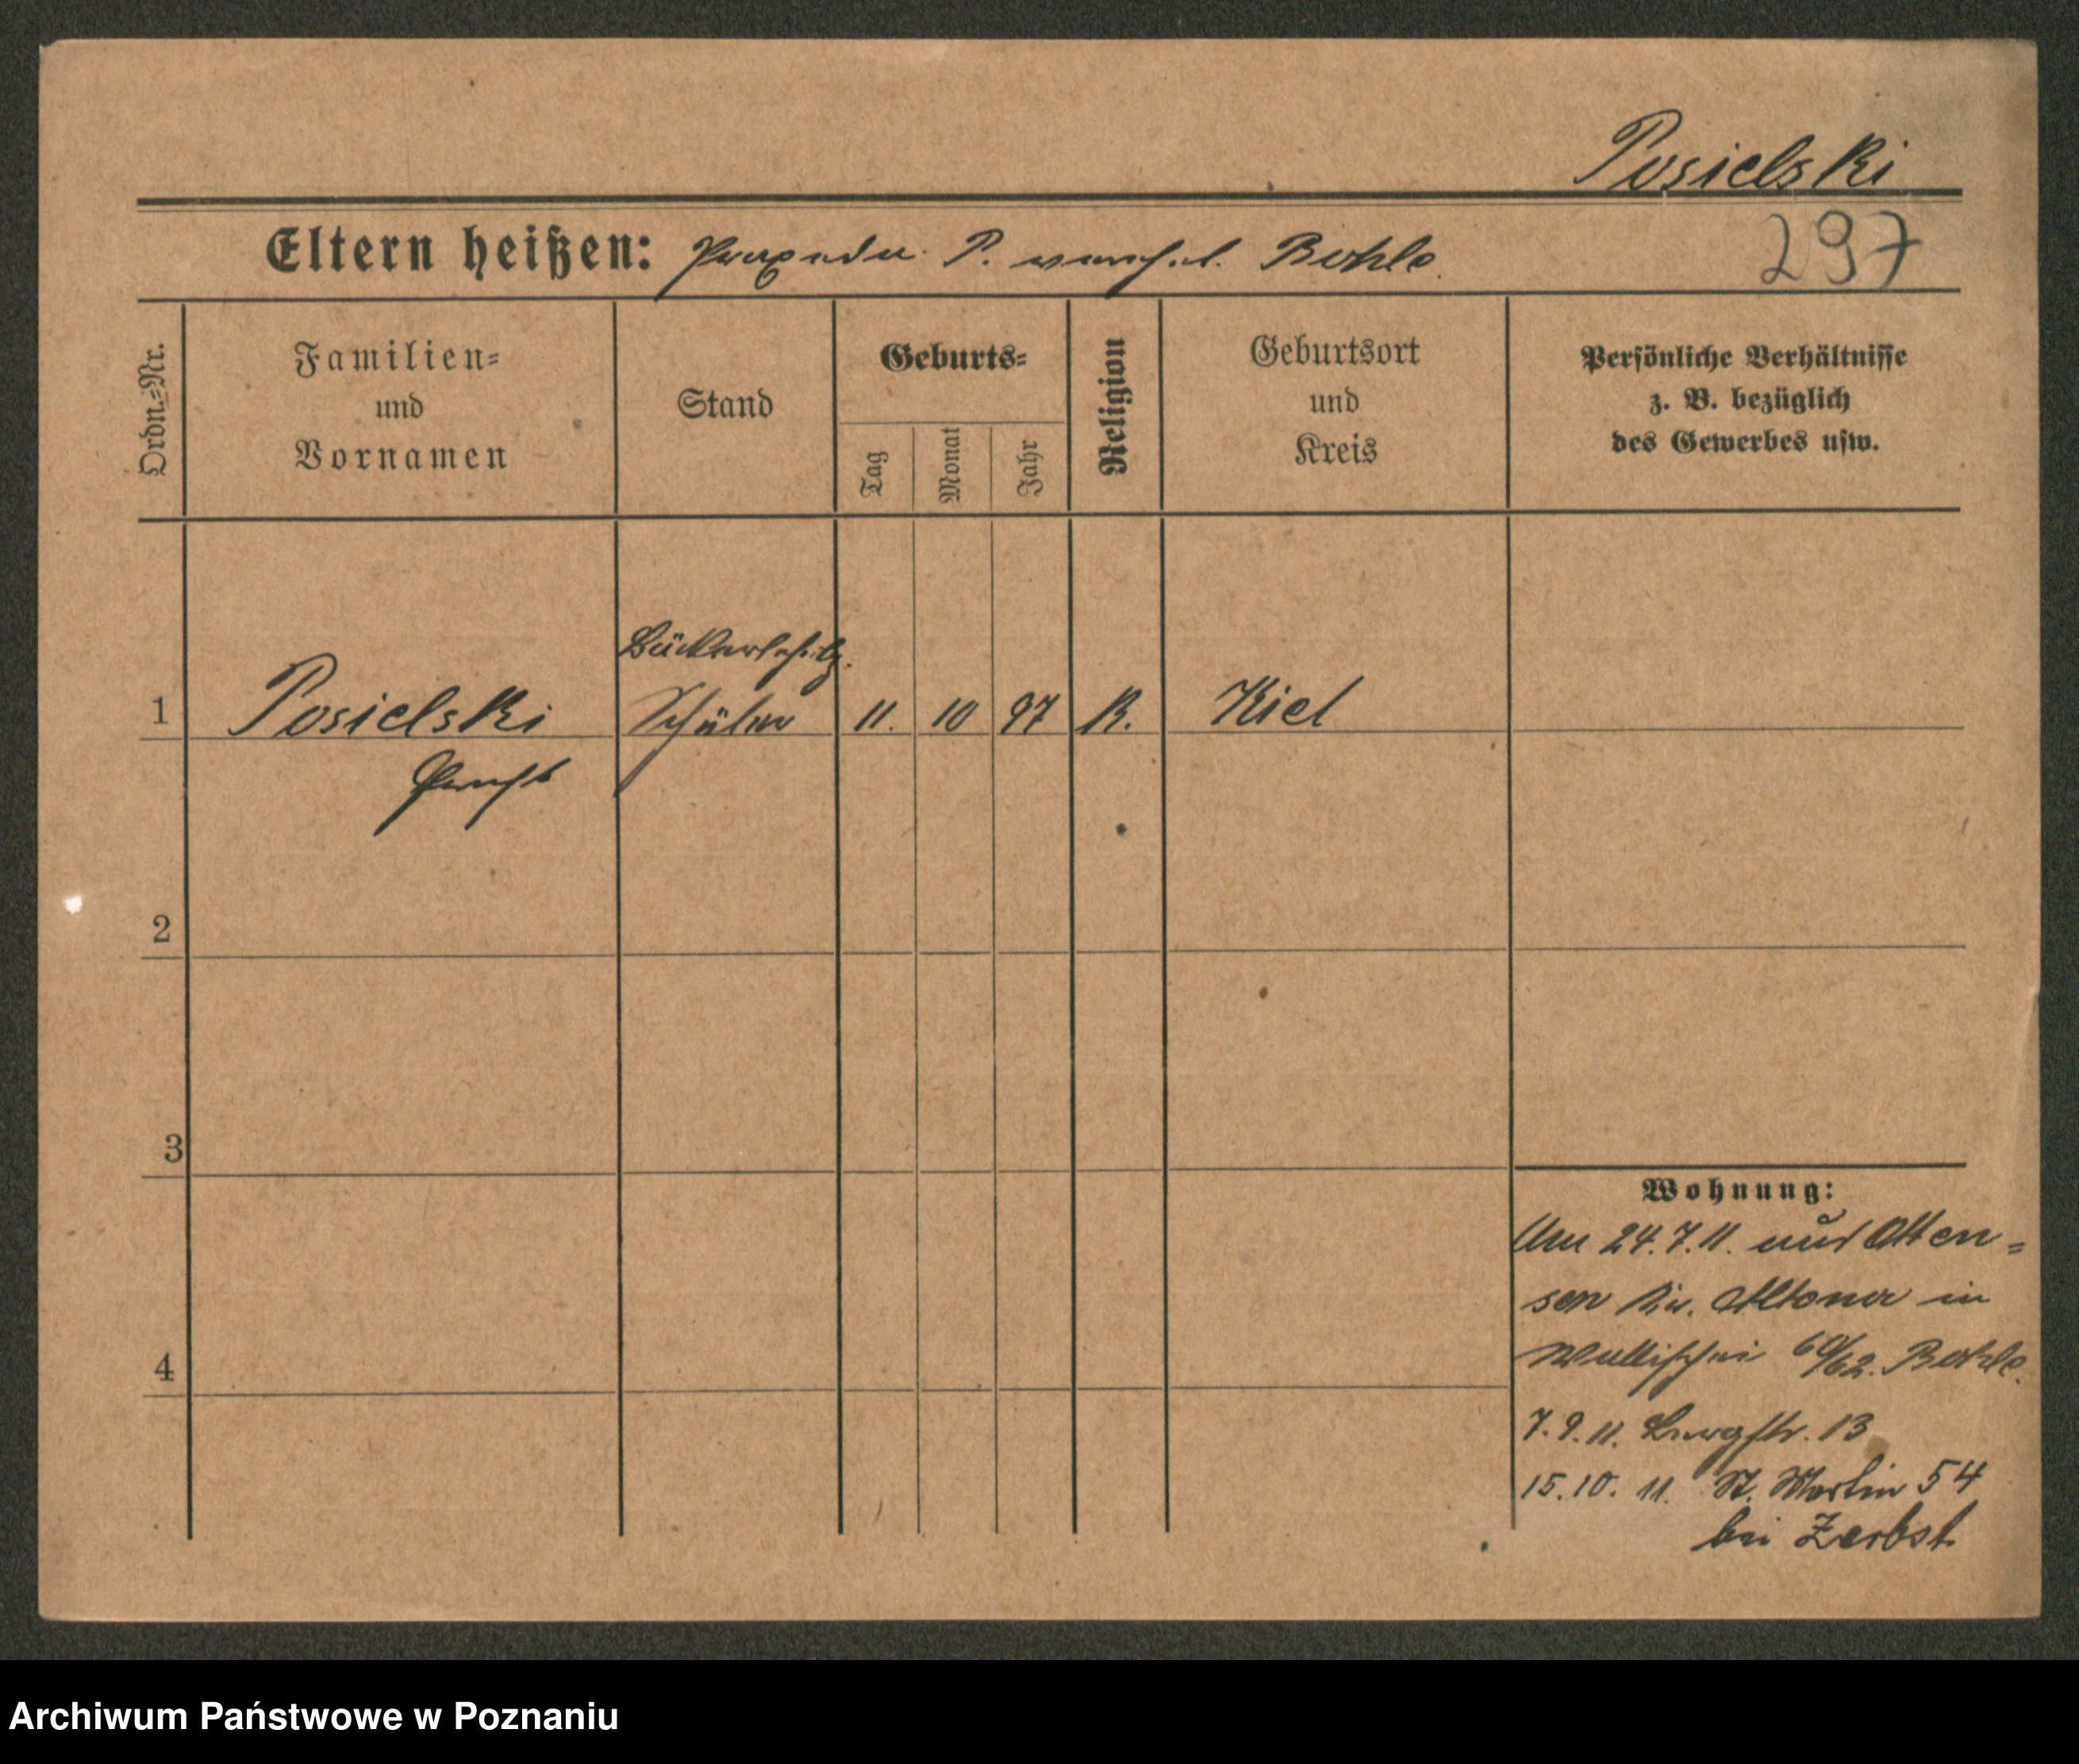 Posielski
Eltern heißen: Praxeda P. verehel. Bohle.
297
Ordn.=Nr.
Familien=
und
Vornamen
Stand
Geburts=
Tag
Monat
Jahr
Religion
Geburtsort
und
Kreis
Persönliche Verhältnisse
z. B. bezüglich
des Gewerbes usw.
Bäckerlehrlg.
1 Posielski Schüler 11. 10 97 K. Kiel
2
3
4
Wohnung:
Am 24.7.11. aus Otten=
sen Kr. Altona in
Wallischei 60/62. Bohle.
7.9.11. Langstr. 13
15.10. 11. St. Martin 54
bei Zerbst
Archiwum Państwowe w Poznaniu